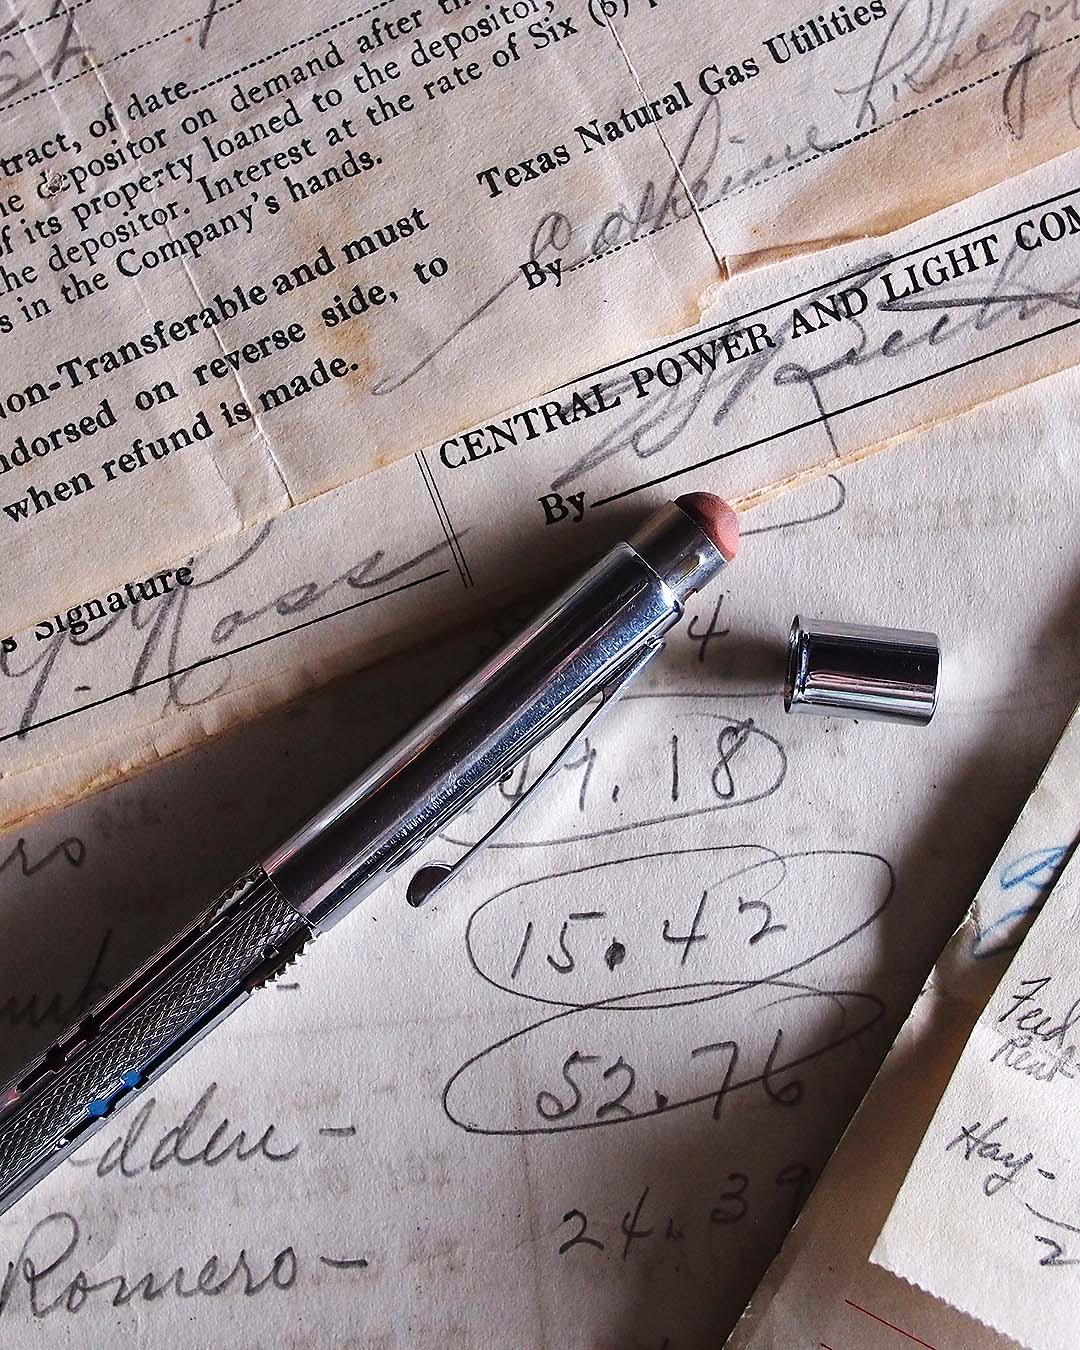 tract, of date
depositor on demand after
of its property loaned to the depositor,
the depositor. Interest at the rate of Six (6)
s in the Company's hands.
Non-Transferable and must
ndorsed on reverse side, to
when refund is made.
Texas Natural Gas Utilities
By
CENTRAL POWER AND LIGHT COM
By
s Signature
4
.18
15.42
52.76
dden -
24.39
Romero -
Feed
Rent
Hay-
2